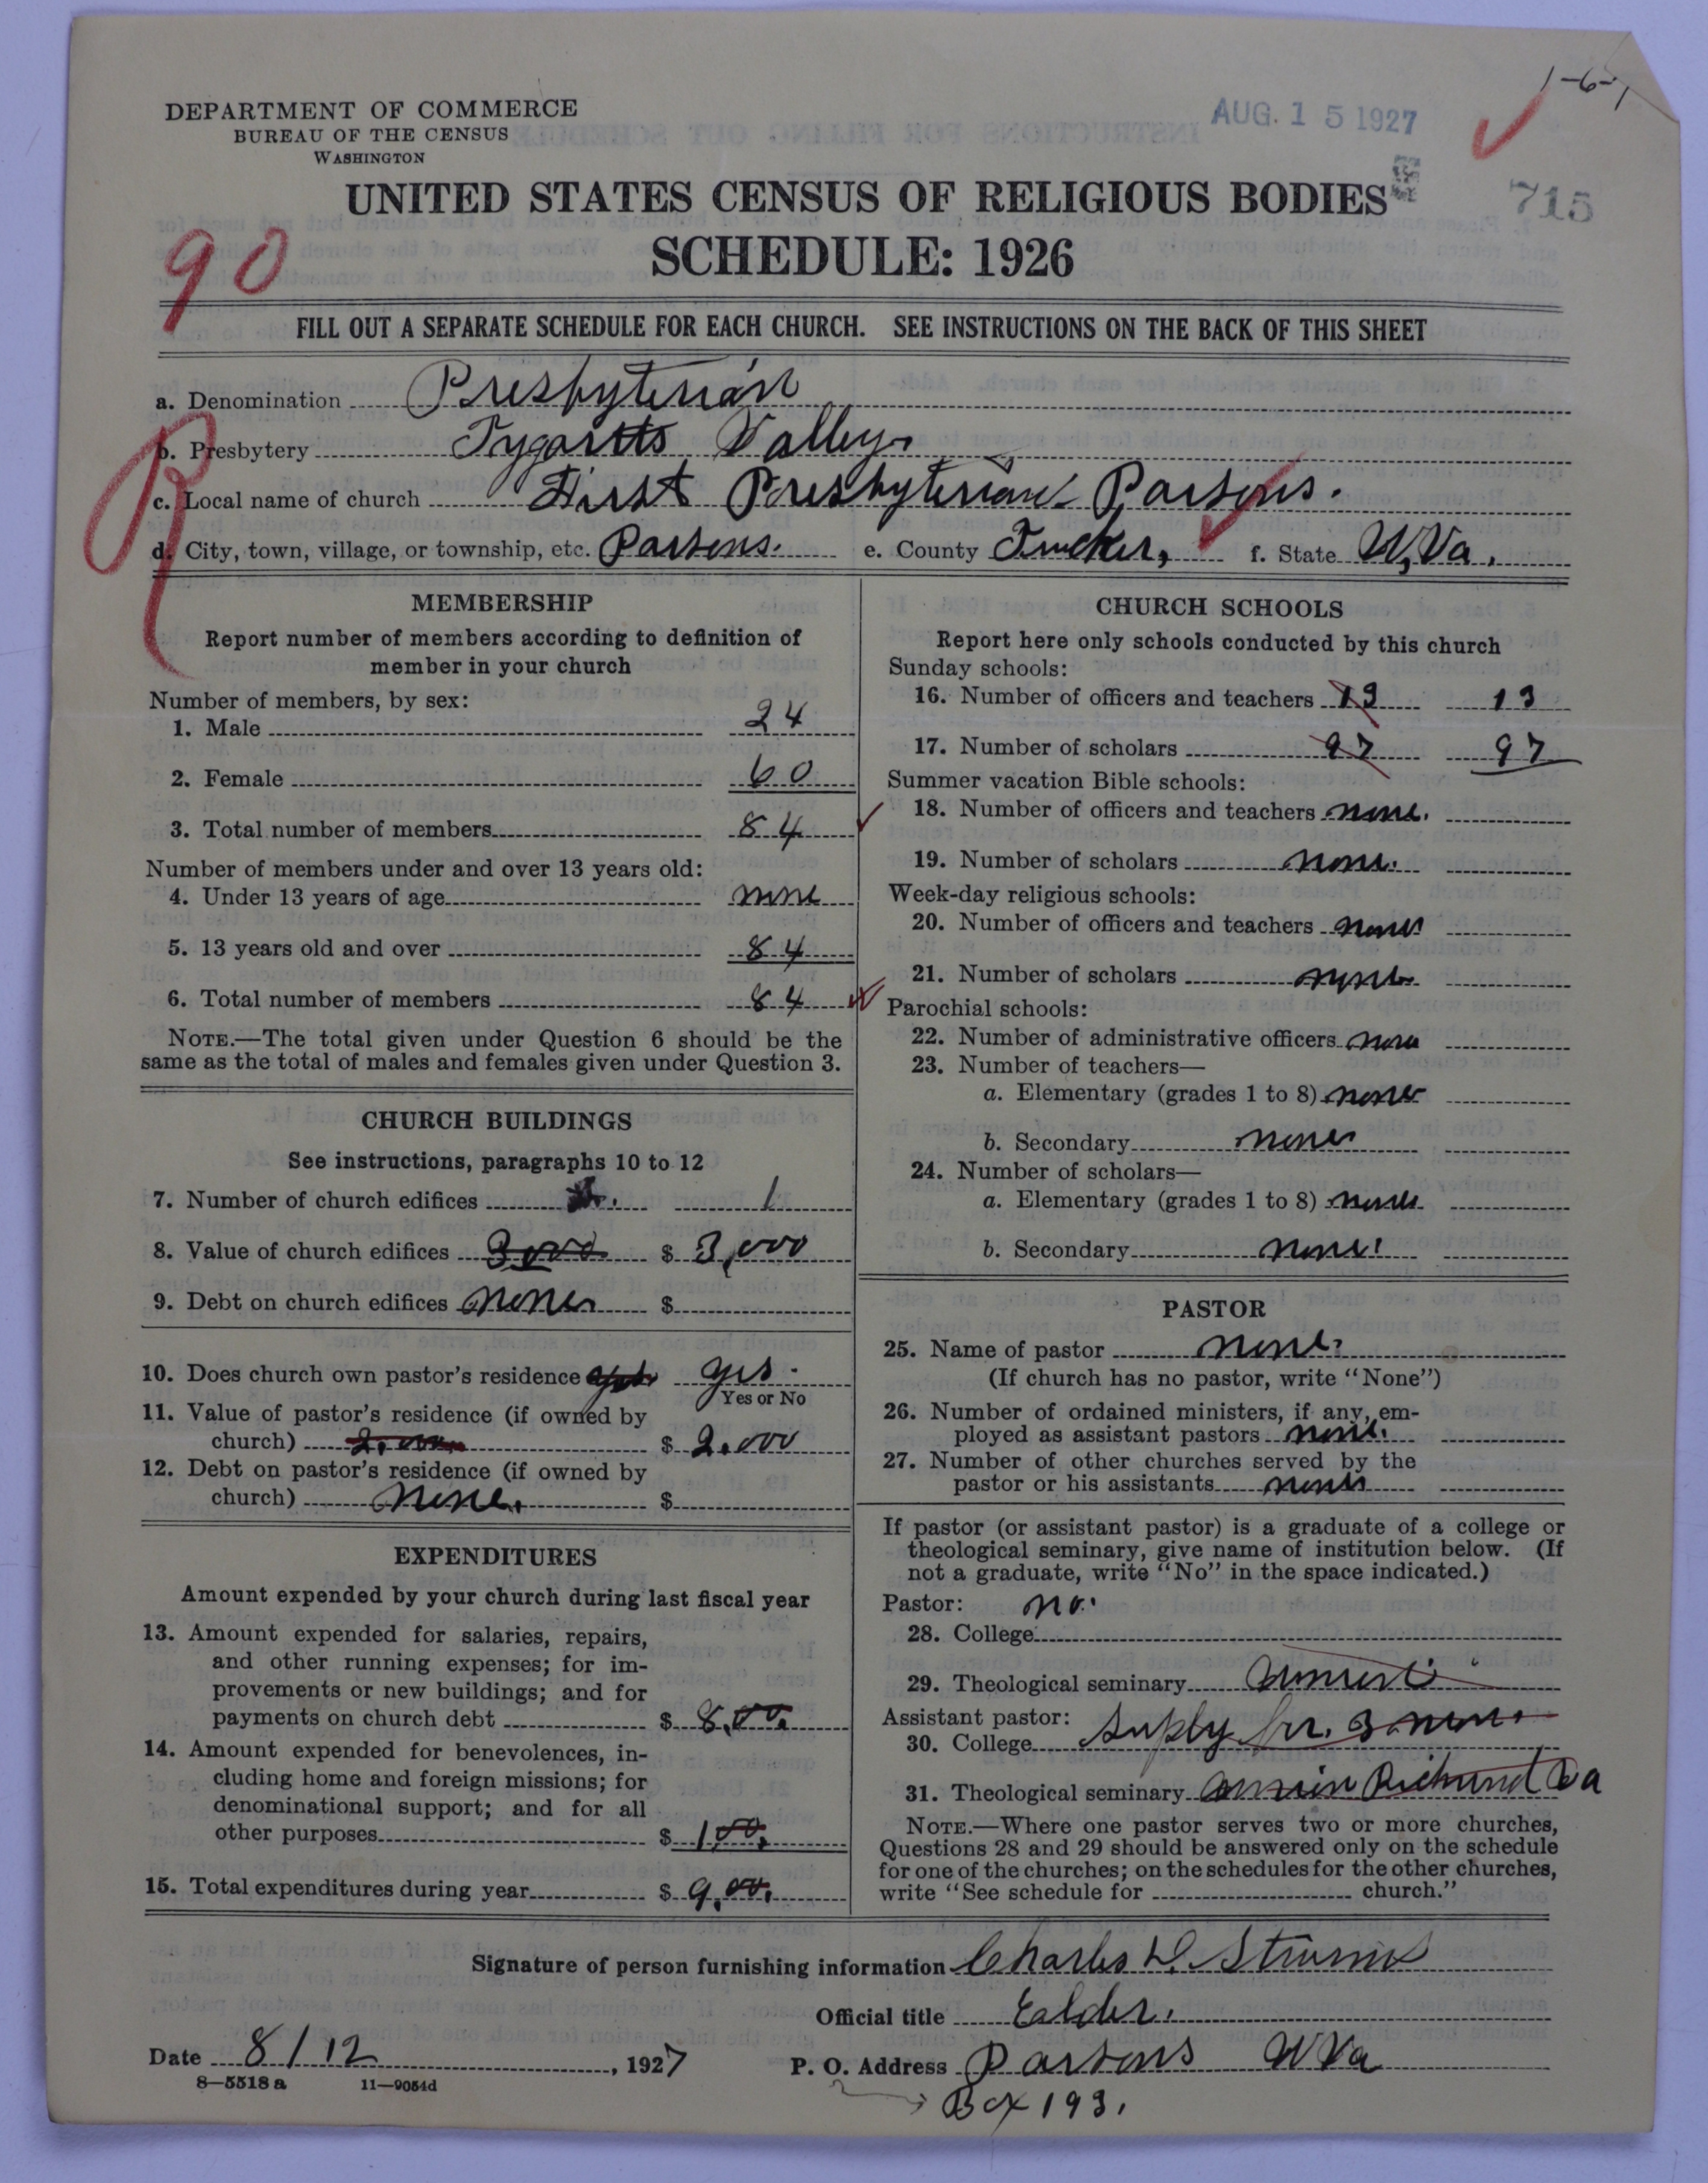 1-6-1
AUG. 15 1927
DEPARTMENT OF COMMERCE
BUREAU OF THE CENSUS
WASHINGTON
715
UNITED STATES CENSUS OF RELIGIOUS BODIES
SCHEDULE: 1926
90
FILL OUT A SEPARATE SCHEDULE FOR EACH CHURCH. SEE INSTRUCTIONS ON THE BACK OF THIS SHEET
a. Denomination Presbyterian
b. Presbytery Tygarts Valley
c. Local name of church First Presbyterian Parsons.
d. City, town, village, or township, etc. Parsons. e. County Tucker, f. State W, Va.
R
MEMBERSHIP
Report number of members according to definition of
member in your church
Number of members, by sex:
1. Male 24
2. Female 60
3. Total number of members 84
Number of members under and over 13 years old:
4. Under 13 years of age none
5. 13 years old and over 84
6. Total number of members 84
NOTE.—The total given under Question 6 should be the
same as the total of males and females given under Question 3.
CHURCH BUILDINGS
See instructions, paragraphs 10 to 12
7. Number of church edifices 1
8. Value of church edifices 3000 $ 3,000
9. Debt on church edifices none $
10. Does church own pastor's residence yes yes.
Yes or No
11. Value of pastor's residence (if owned by
church) 2.000 $ 2.000
12. Debt on pastor's residence (if owned by
church) None. $
EXPENDITURES
Amount expended by your church during last fiscal year
13. Amount expended for salaries, repairs,
and other running expenses; for im-
provements or new buildings; and for
payments on church debt $ 8.00.
14. Amount expended for benevolences, in-
cluding home and foreign missions; for
denominational support; and for all
other purposes $ 100.
15. Total expenditures during year $ 9.00.
CHURCH SCHOOLS
Report here only schools conducted by this church
Sunday schools:
16. Number of officers and teachers 13 13
17. Number of scholars 97 97
Summer vacation Bible schools:
18. Number of officers and teachers none.
19. Number of scholars none.
Week-day religious schools:
20. Number of officers and teachers none
21. Number of scholars none
Parochial schools:
22. Number of administrative officers none
23. Number of teachers—
a. Elementary (grades 1 to 8) none
b. Secondary none
24. Number of scholars—
a. Elementary (grades 1 to 8) none
b. Secondary none
PASTOR
25. Name of pastor None.
(If church has no pastor, write "None")
26. Number of ordained ministers, if any, em-
ployed as assistant pastors none.
27. Number of other churches served by the
pastor or his assistants none
If pastor (or assistant pastor) is a graduate of a college or
theological seminary, give name of institution below. (If
not a graduate, write "No" in the space indicated.)
Pastor: no.
28. College
29. Theological seminary
Assistant pastor:
30. College Suply for 3
31. Theological seminary Richmond Va
NOTE.—Where one pastor serves two or more churches,
Questions 28 and 29 should be answered only on the schedule
for one of the churches; on the schedules for the other churches,
write "See schedule for church."
Signature of person furnishing information Charles
Official title Ealder.
Date 8/12, 1927 P. O. Address Parsons W Va
8—5518a 11—9054d Box 193.